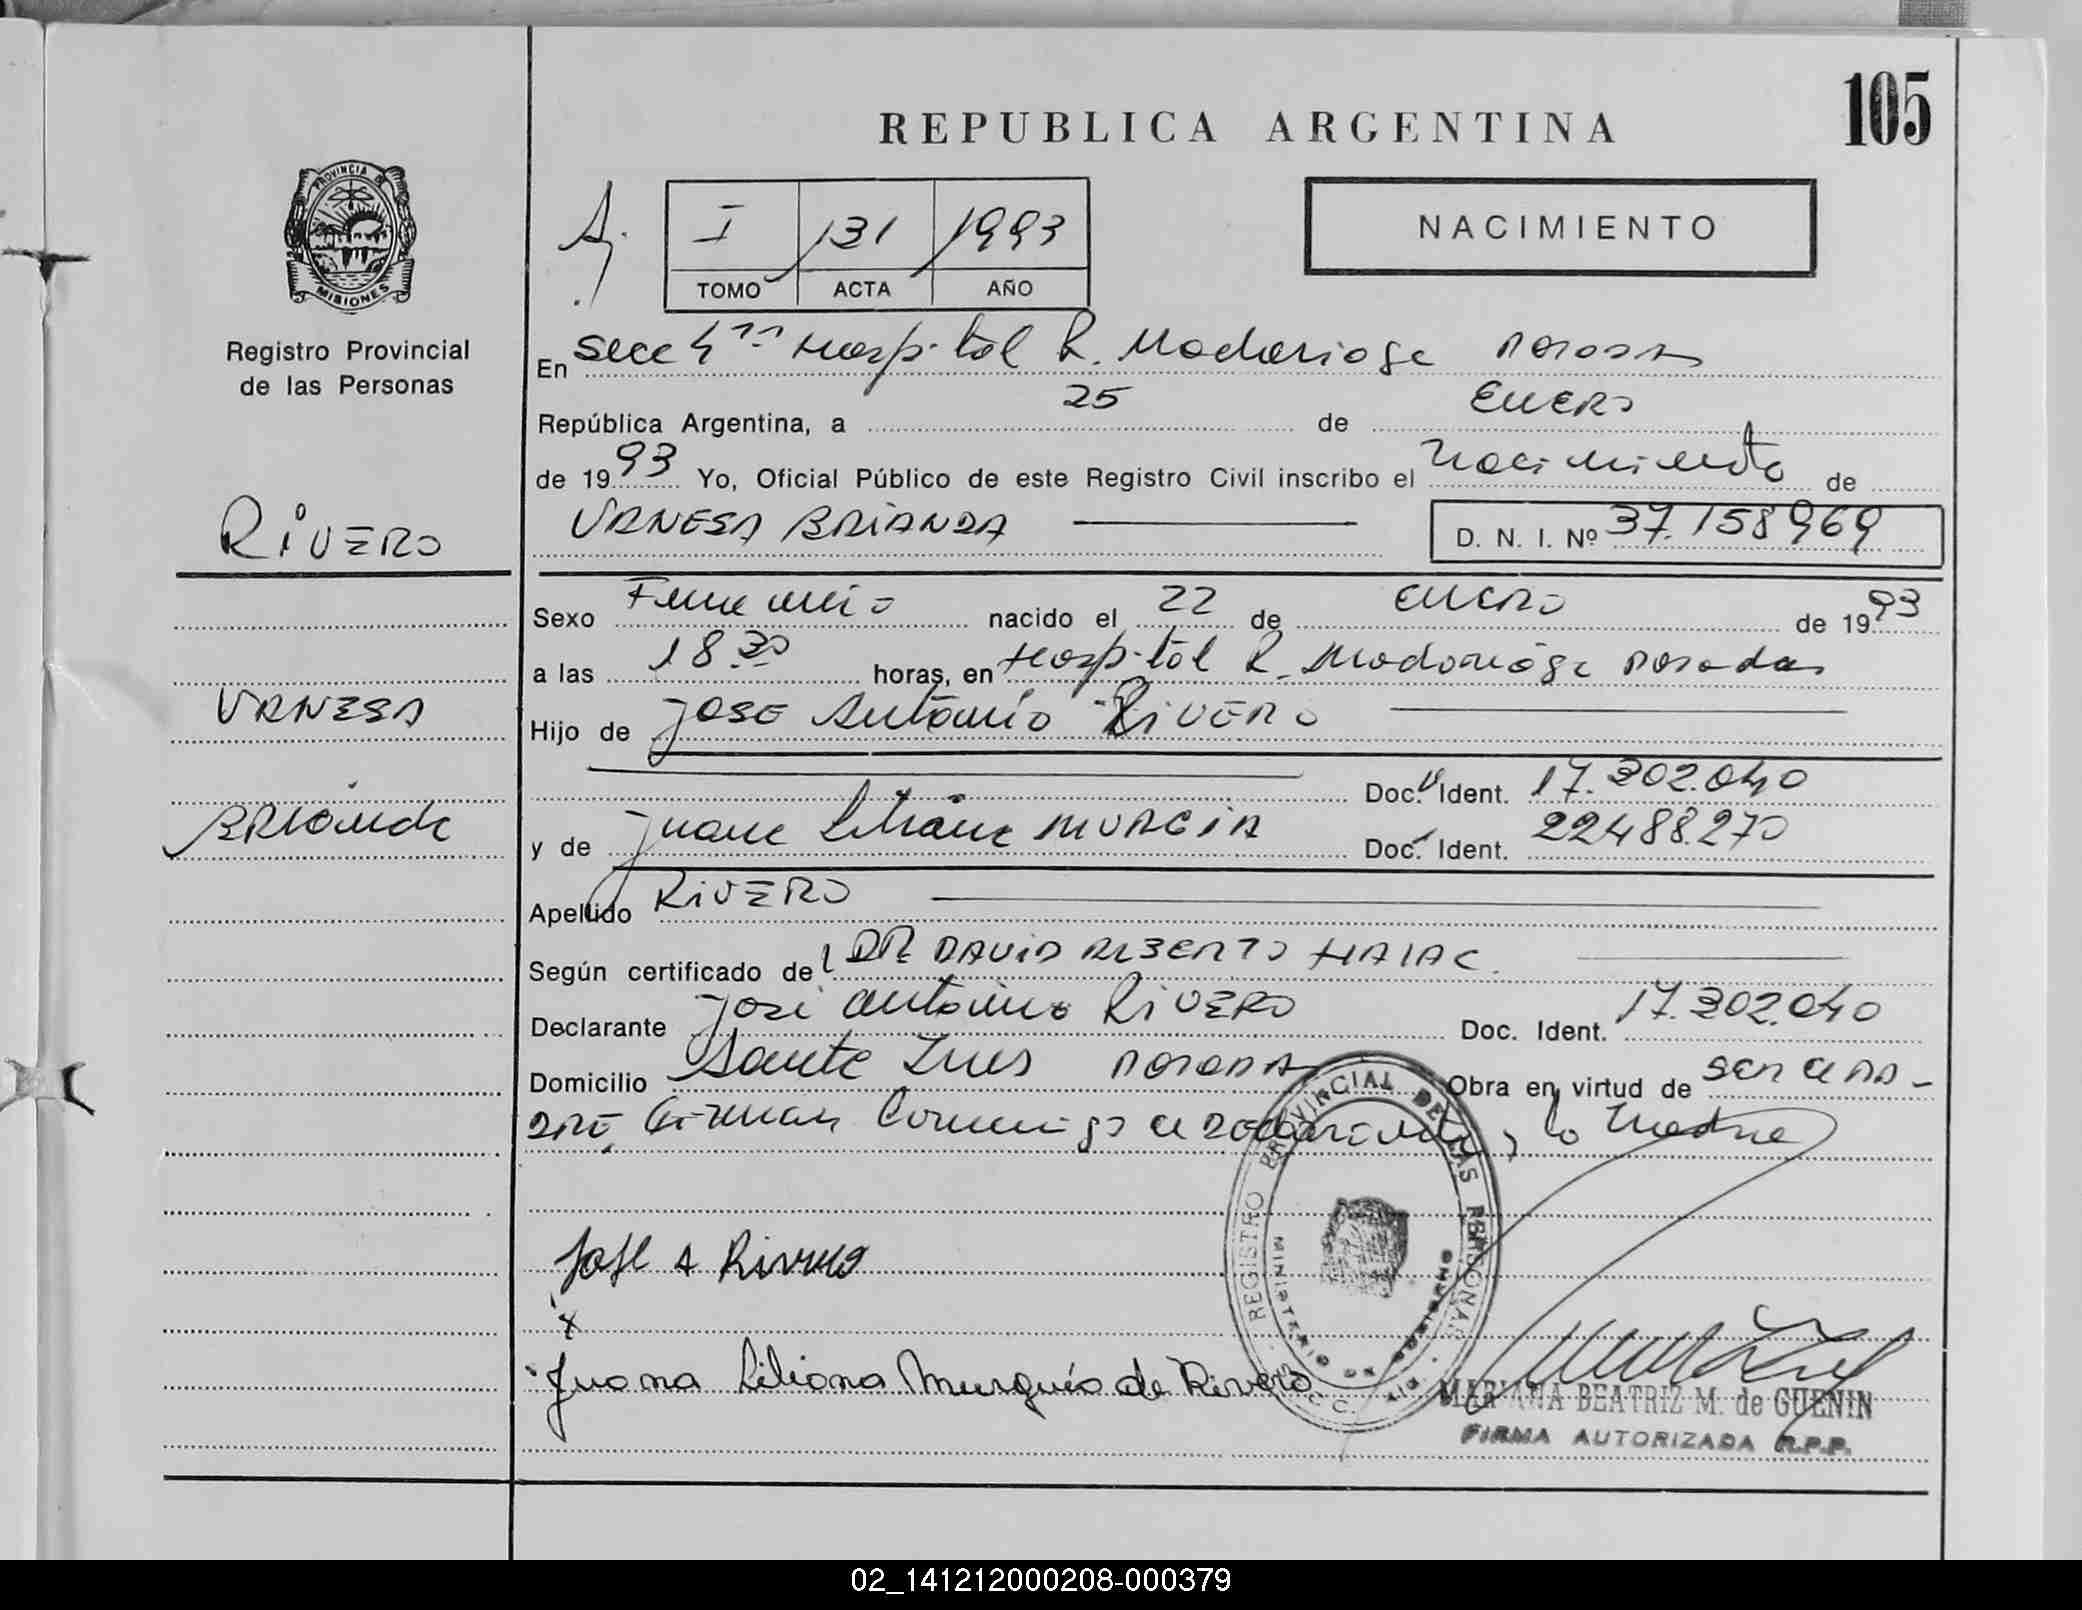 105
REPUBLICA ARGENTINA
NACIMIENTO
I 131 1993
TOMO ACTA AÑO
PROVINCIA DE
MISIONES
Registro Provincial
de las Personas
RIVERO
VANESA
BRIANDA
En Secc 4ta Hospital R. Madariaga Posadas
República Argentina, a 25 de ENERO
de 1993 Yo, Oficial Público de este Registro Civil inscribo el nacimiento de
VANESA BRIANDA
D. N. I. Nº 37.158969
Sexo Femenino nacido el 22 de enero de 1993
a las 18 30 horas, en Hospital R. Madariaga Posadas
Hijo de JOSE Antonio RIVERO
Doc. Ident. 17.302.040
y de Juana Liliana MURGIA Doc. Ident. 22488.270
Apellido RIVERO
Según certificado de DR DAVID ALBERTO HALAC
Declarante José Antonio RIVERO Doc. Ident. 17.302.040
Domicilio Santa Inés POSADAS Obra en virtud de SER el PA-
DRE, Firman Conmigo el declarante y la Madre
José A Rivero
x
Juana Liliana Murguía de Rivero
REGISTRO PROVINCIAL DE LAS PERSONAS
MINISTERIO DE GOBIERNO
MARIANA BEATRIZ M. de GUENIN
FIRMA AUTORIZADA R.P.P.
02_141212000208-000379